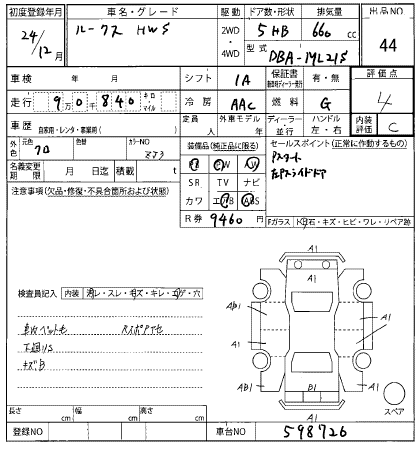 初度登録年月 車名・グレード 駆動 ドア数・形状 排気量 出品NO
24/12月 ルークス HWS 2WD 4WD 5 HB 660 cc 44
型式 DBA-ML21S
車検 年 月 シフト IA 保証書 有・無 評価点
走行 9万0千840 キロ・マイル 冷房 AAC 燃料 G 4
車歴 自家用・レンタ・事業用( ) 定員 人 外車モデル 年 ディーラー 並行 ハンドル 左・右 内装評価 C
外色 元色 クロ 色替 カラーNO ZJ3
装備品(純正品に限る) セールスポイント(正常に作動するもの)
PS PW AW Pスタート
名義変更期限 月 日迄 積載 t SR TV ナビ 左Pスライドドア
注意事項(欠品・修復・不具合箇所および状態) カワ エアB ABS
R券 9460 円
Fガラス 飛石・キズ・ヒビ・ワレ・リペア跡
A1
A1
検査員記入 内装 汚レ・スレ・キズ・キレ・コゲ・穴
AB1 A1
A1 A1
キズB
AB1 B1 A1
A1
スペア
長さ cm 幅 cm 高さ cm
登録NO 車台NO 598726